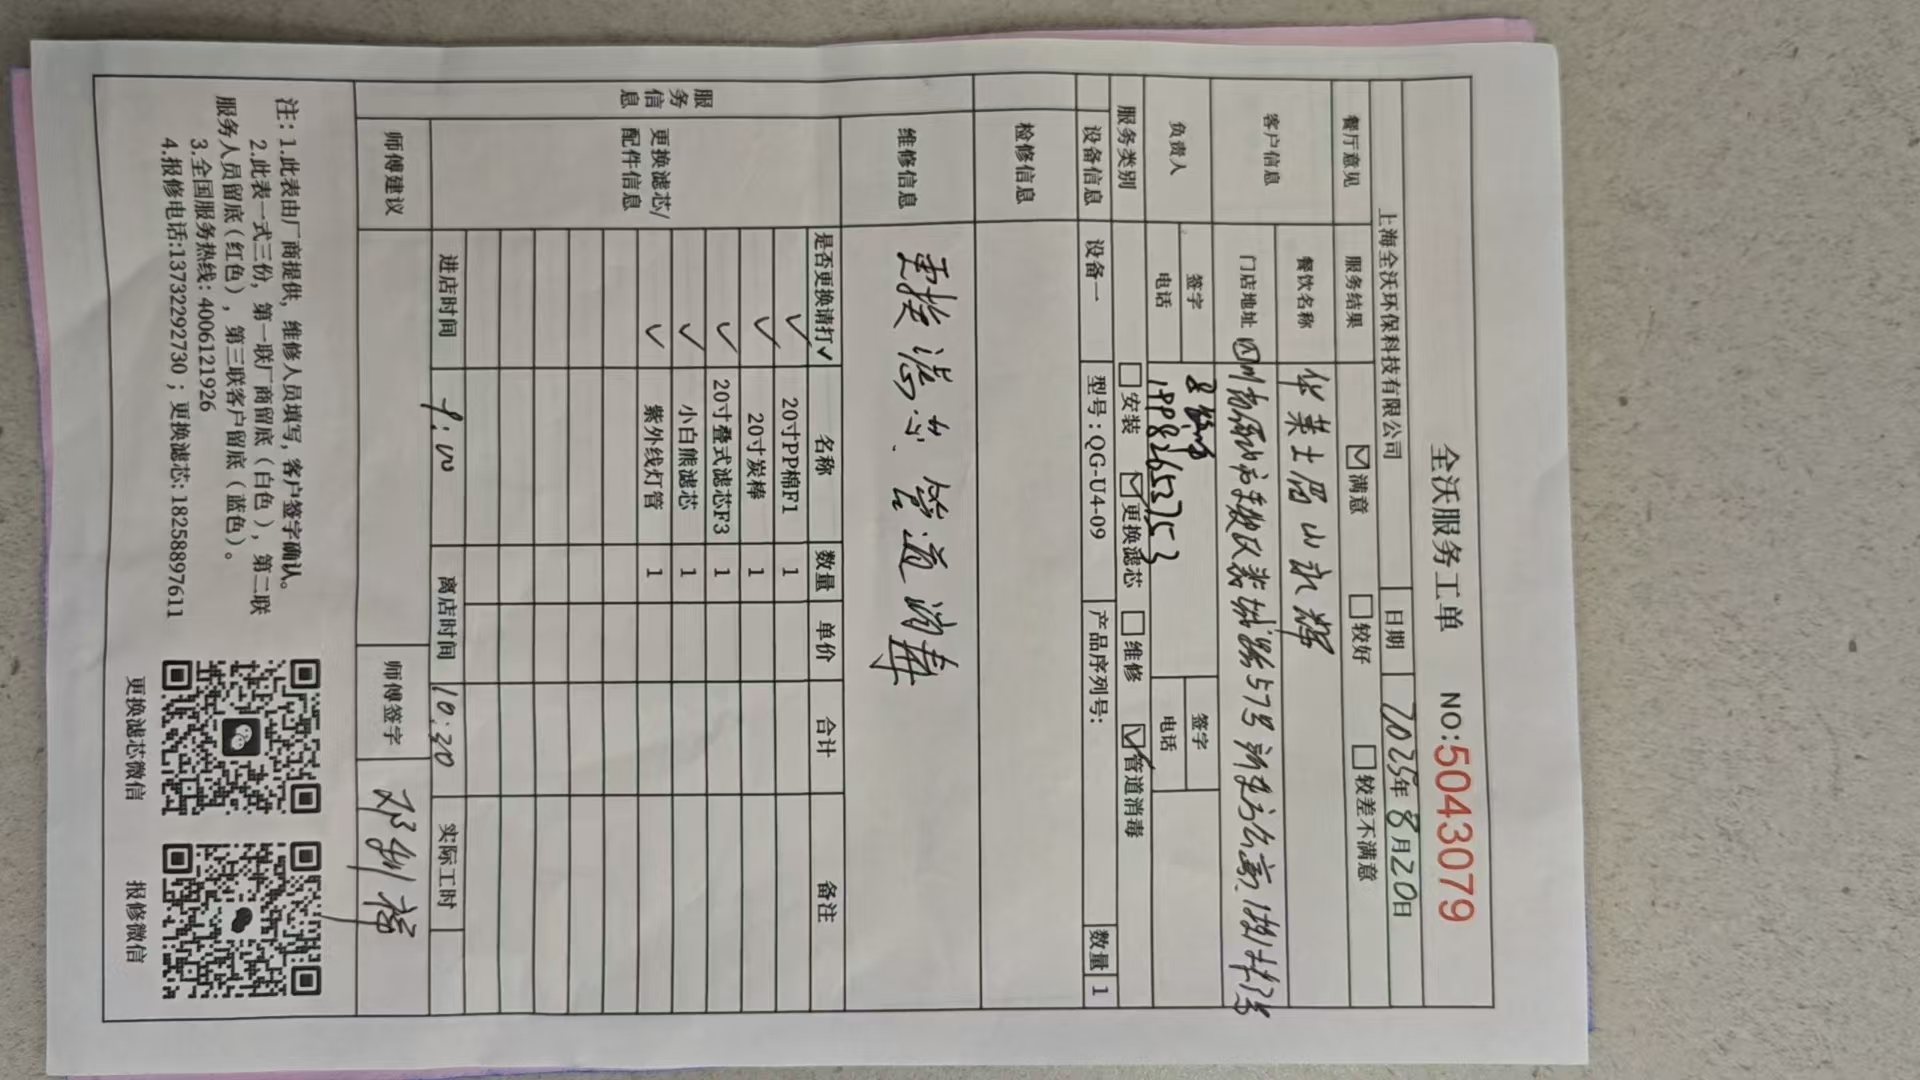 全沃服务工单 NO:50430079
上海全沃环保科技有限公司 日期 2025年8月20日
餐厅意见 服务结果 ☑满意 □较好 □较差不满意
客户信息 餐饮名称 华莱士眉山永辉
门店地址 四川省眉山市 57号
负责人 签字 签字
电话 19982653753 电话
服务类别 □安装 ☑更换滤芯 □维修 ☑管道消毒
设备信息 设备一 型号:QG-U4-09 产品序列号: 数量 1
检修信息
维修信息 更换滤芯、管道消毒
服务信息
更换滤芯/配件信息
是否更换请打✓ 名称 数量 单价 合计 备注
✓ 20寸PP棉F1 1
✓ 20寸炭棒 1
✓ 20寸叠式滤芯F3 1
✓ 小白熊滤芯 1
✓ 紫外线灯管 1
进店时间 9:00 离店时间 10:20 实际工时
师傅建议 师傅签字
注:1.此表由厂商提供,维修人员填写,客户签字确认。
2.此表一式三份,第一联厂商留底(白色),第二联
服务人员留底(红色),第三联客户留底(蓝色)。
3.全国服务热线:4006121926
4.报修电话:13732292730;更换滤芯:18258897611
更换滤芯微信 报修微信